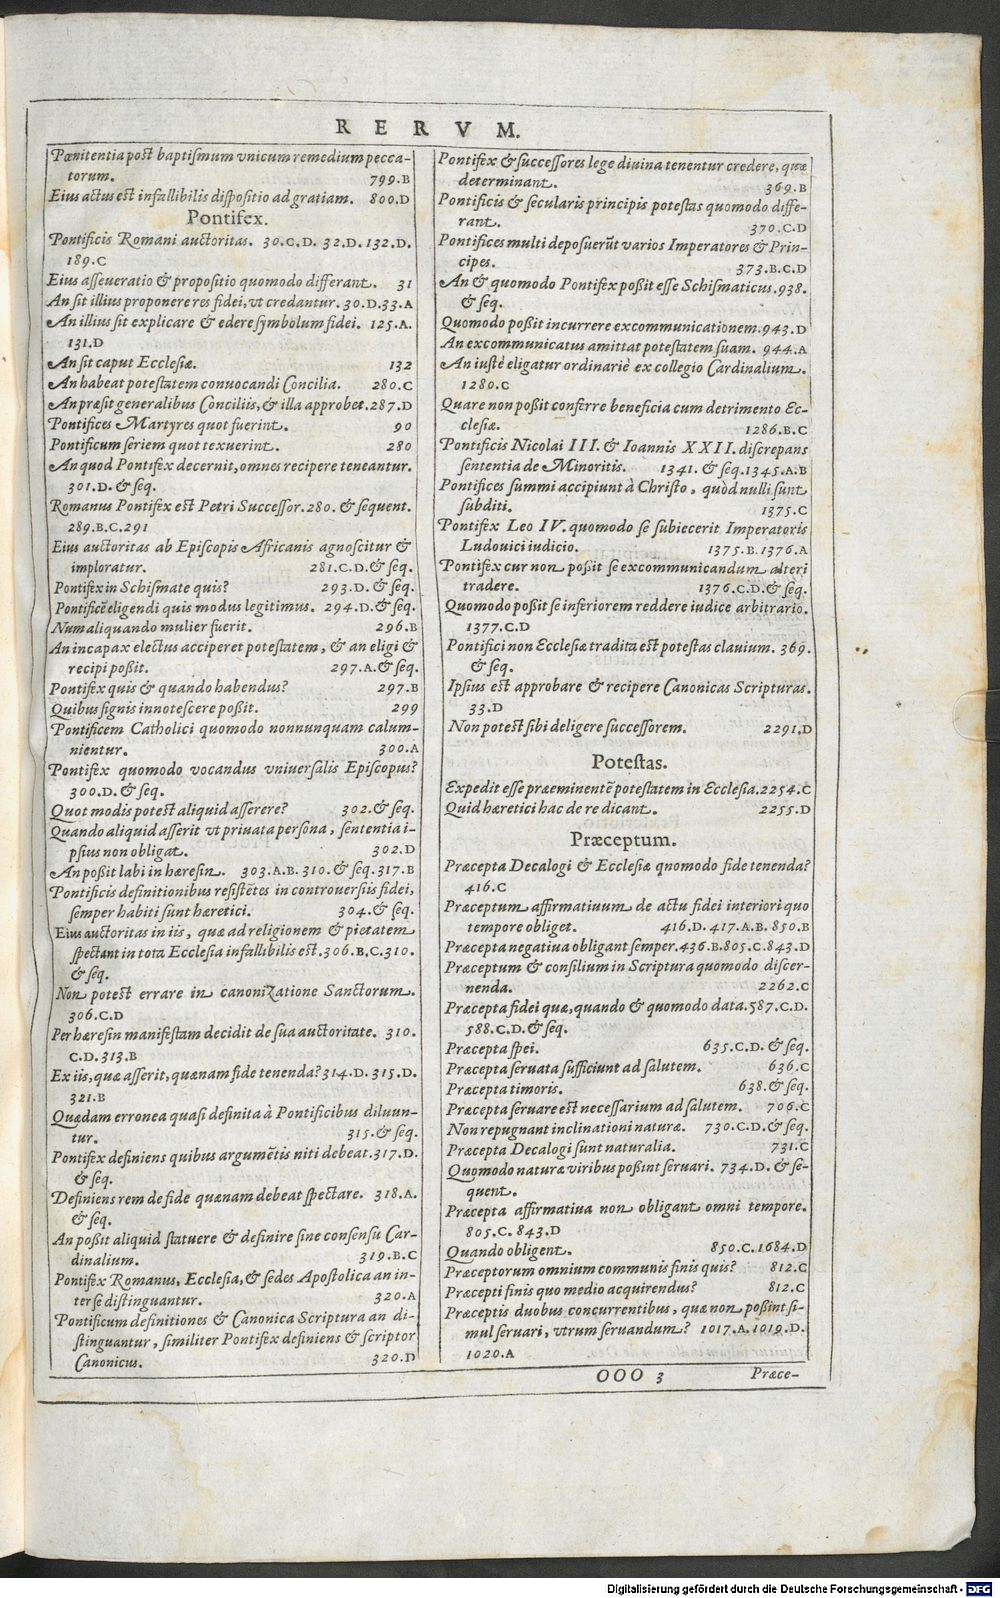 RERVM.
Pœnitentia post baptismum vnicum remedium pecca-
torum. 799.B
Eius actus est infallibilis dispositio ad gratiam. 800.D
Pontifex.
Pontificis Romani auctoritas. 30.C.D. 32.D. 132.D.
189.C
Eius asseueratio & propositio quomodo differant. 31
An sit illius proponere res fidei, vt credantur. 30.D.33.A
An illius sit explicare & edere symbolum fidei. 125.A.
131.D
An sit caput Ecclesiæ. 132
An habeat potestatem conuocandi Concilia. 280.C
An præsit generalibus Conciliis, & illa approbet. 287.D
Pontifices Martyres quot fuerint. 90
Pontificum seriem quot texuerint. 280
An quod Pontifex decernit, omnes recipere teneantur.
301.D. & seq.
Romanus Pontifex est Petri Successor. 280. & sequent.
289.B.C.291
Eius auctoritas ab Episcopis Africanis agnoscitur &
imploratur. 281.C.D.& seq.
Pontifex in Schismate quis? 293.D. & seq.
Pontificē eligendi quis modus legitimus. 294.D.& seq.
Num aliquando mulier fuerit. 296.B
An incapax electus acciperet potestatem, & an eligi &
recipi possit. 297.A.& seq.
Pontifex quis & quando habendus? 297.B
Quibus signis innotescere possit. 299
Pontificem Catholici quomodo nonnunquam calum-
nientur. 300.A
Pontifex quomodo vocandus vniuersalis Episcopus?
300.D. & seq.
Quot modis potest aliquid asserere? 302.& seq.
Quando aliquid asserit vt priuata persona, sententia i-
psius non obligat. 302.D
An possit labi in hæresin. 303.A.B. 310. & seq. 317.B
Pontificis definitionibus resistētes in controuersiis fidei,
semper habiti sunt hæretici. 304.& seq.
Eius auctoritas in iis, quæ ad religionem & pietatem
spectant in tota Ecclesia infallibilis est. 306.B.C.310.
& seq.
Non potest errare in canonizatione Sanctorum.
306.C.D
Per hæresin manifestam decidit de sua auctoritate. 310.
C.D. 313.B
Ex iis, quæ asserit, quænam fide tenenda? 314.D. 315.D.
321.B
Quædam erronea quasi definita à Pontificibus diluun-
tur. 315.& seq.
Pontifex definiens quibus argumētis niti debeat. 317.D.
& seq.
Definiens rem de fide quænam debeat spectare. 318.A.
& seq.
An possit aliquid statuere & definire sine consensu Car-
dinalium. 319.B.C
Pontifex Romanus, Ecclesia, & sedes Apostolica an in-
ter se distinguantur. 320.A
Pontificum definitiones & Canonica Scriptura an di-
stinguantur, similiter Pontifex definiens & scriptor
Canonicus. 320.D
Pontifex & successores lege diuina tenentur credere, quæ
determinant. 369.B
Pontificis & secularis principis potestas quomodo diffe-
rant. 370.C.D
Pontifices multi deposuerūt varios Imperatores & Prin-
cipes. 373.B.C.D
An & quomodo Pontifex possit esse Schismaticus. 938.
& seq.
Quomodo possit incurrere excommunicationem. 943.D
An excommunicatus amittat potestatem suam. 944.A
An iustè eligatur ordinariè ex collegio Cardinalium.
1280.C
Quare non possit conferre beneficia cum detrimento Ec-
clesiæ. 1286.B.C
Pontificis Nicolai III. & Ioannis XXII. discrepans
sententia de Minoritis. 1341. & seq. 1345.A.B
Pontifices summi accipiunt à Christo, quòd nulli sunt
subditi. 1375.C
Pontifex Leo IV. quomodo se subiecerit Imperatoris
Ludouici iudicio. 1375.B.1376.A
Pontifex cur non possit se excommunicandum alteri
tradere. 1376.C.D.& seq.
Quomodo possit se inferiorem reddere iudice arbitrario.
1377.C.D
Pontifici non Ecclesiæ tradita est potestas clauium. 369.
& seq.
Ipsius est approbare & recipere Canonicas Scripturas.
33.D
Non potest sibi deligere successorem. 2291.D
Potestas.
Expedit esse præeminentē potestatem in Ecclesia. 2254.C
Quid hæretici hac de re dicant. 2255.D
Præceptum.
Præcepta Decalogi & Ecclesiæ qnomodo fide tenenda?
416.C
Præceptum affirmatiuum de actu fidei interiori quo
tempore obliget. 416.D. 417.A.B. 850.B
Præcepta negatiua obligant semper. 436.B.805.C.843.D
Præceptum & consilium in Scriptura quomodo discer-
nenda. 2262.C
Præcepta fidei quæ, quando & quomodo data. 587.C.D.
588.C.D.& seq.
Præcepta spei. 635.C.D. & seq.
Præcepta seruata sufficiunt ad salutem. 636.C
Præcepta timoris. 638.& seq.
Præcepta seruare est necessarium ad salutem. 706.C
Non repugnant inclinationi naturæ. 730.C.D.& seq.
Præcepta Decalogi sunt naturalia. 731.C
Quomodo naturæ viribus possint seruari. 734.D. & se-
quent.
Præcepta affirmatiua non obligant omni tempore.
805.C. 843.D
Quando obligent. 850.C.1684.D
Præceptorum omnium communis finis quis? 812.C
Præcepti finis quo medio acquirendus? 812.C
Præceptis duobus concurrentibus, quæ non possint si-
mul seruari, vtrum seruandum? 1017.A.1019.D.
1020.A
OOO 3 Præce-
Digitalisierung gefördert durch die Deutsche Forschungsgemeinschaft - DFG